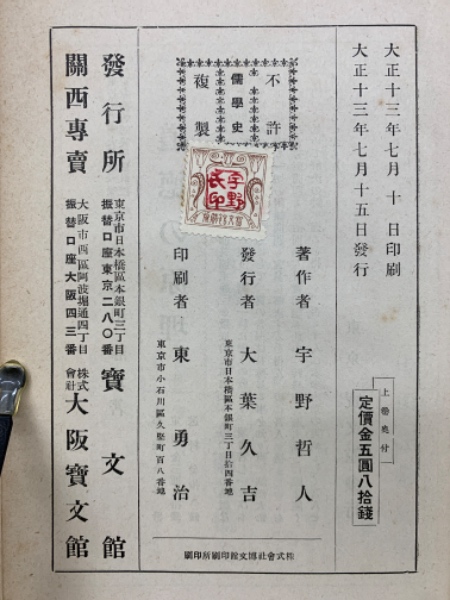 大正十三年七月十日印刷
大正十三年七月十五日發行
上卷奥付
定價金五圓八拾錢
不許
儒學史
複製
宇野
氏印
著作者 宇野哲人
發行者 大葉久吉
東京市日本橋區本銀町三丁目拾四番地
印刷者 東勇治
東京市小石川區久堅町百八番地
株式會社博文館印刷所印刷
發行所 東京市日本橋區本銀町三丁目 寶文館
振替口座東京二八〇番
關西專賣 大阪市西區阿波堀通四丁目 株式會社 大阪寶文館
振替口座大阪四三番